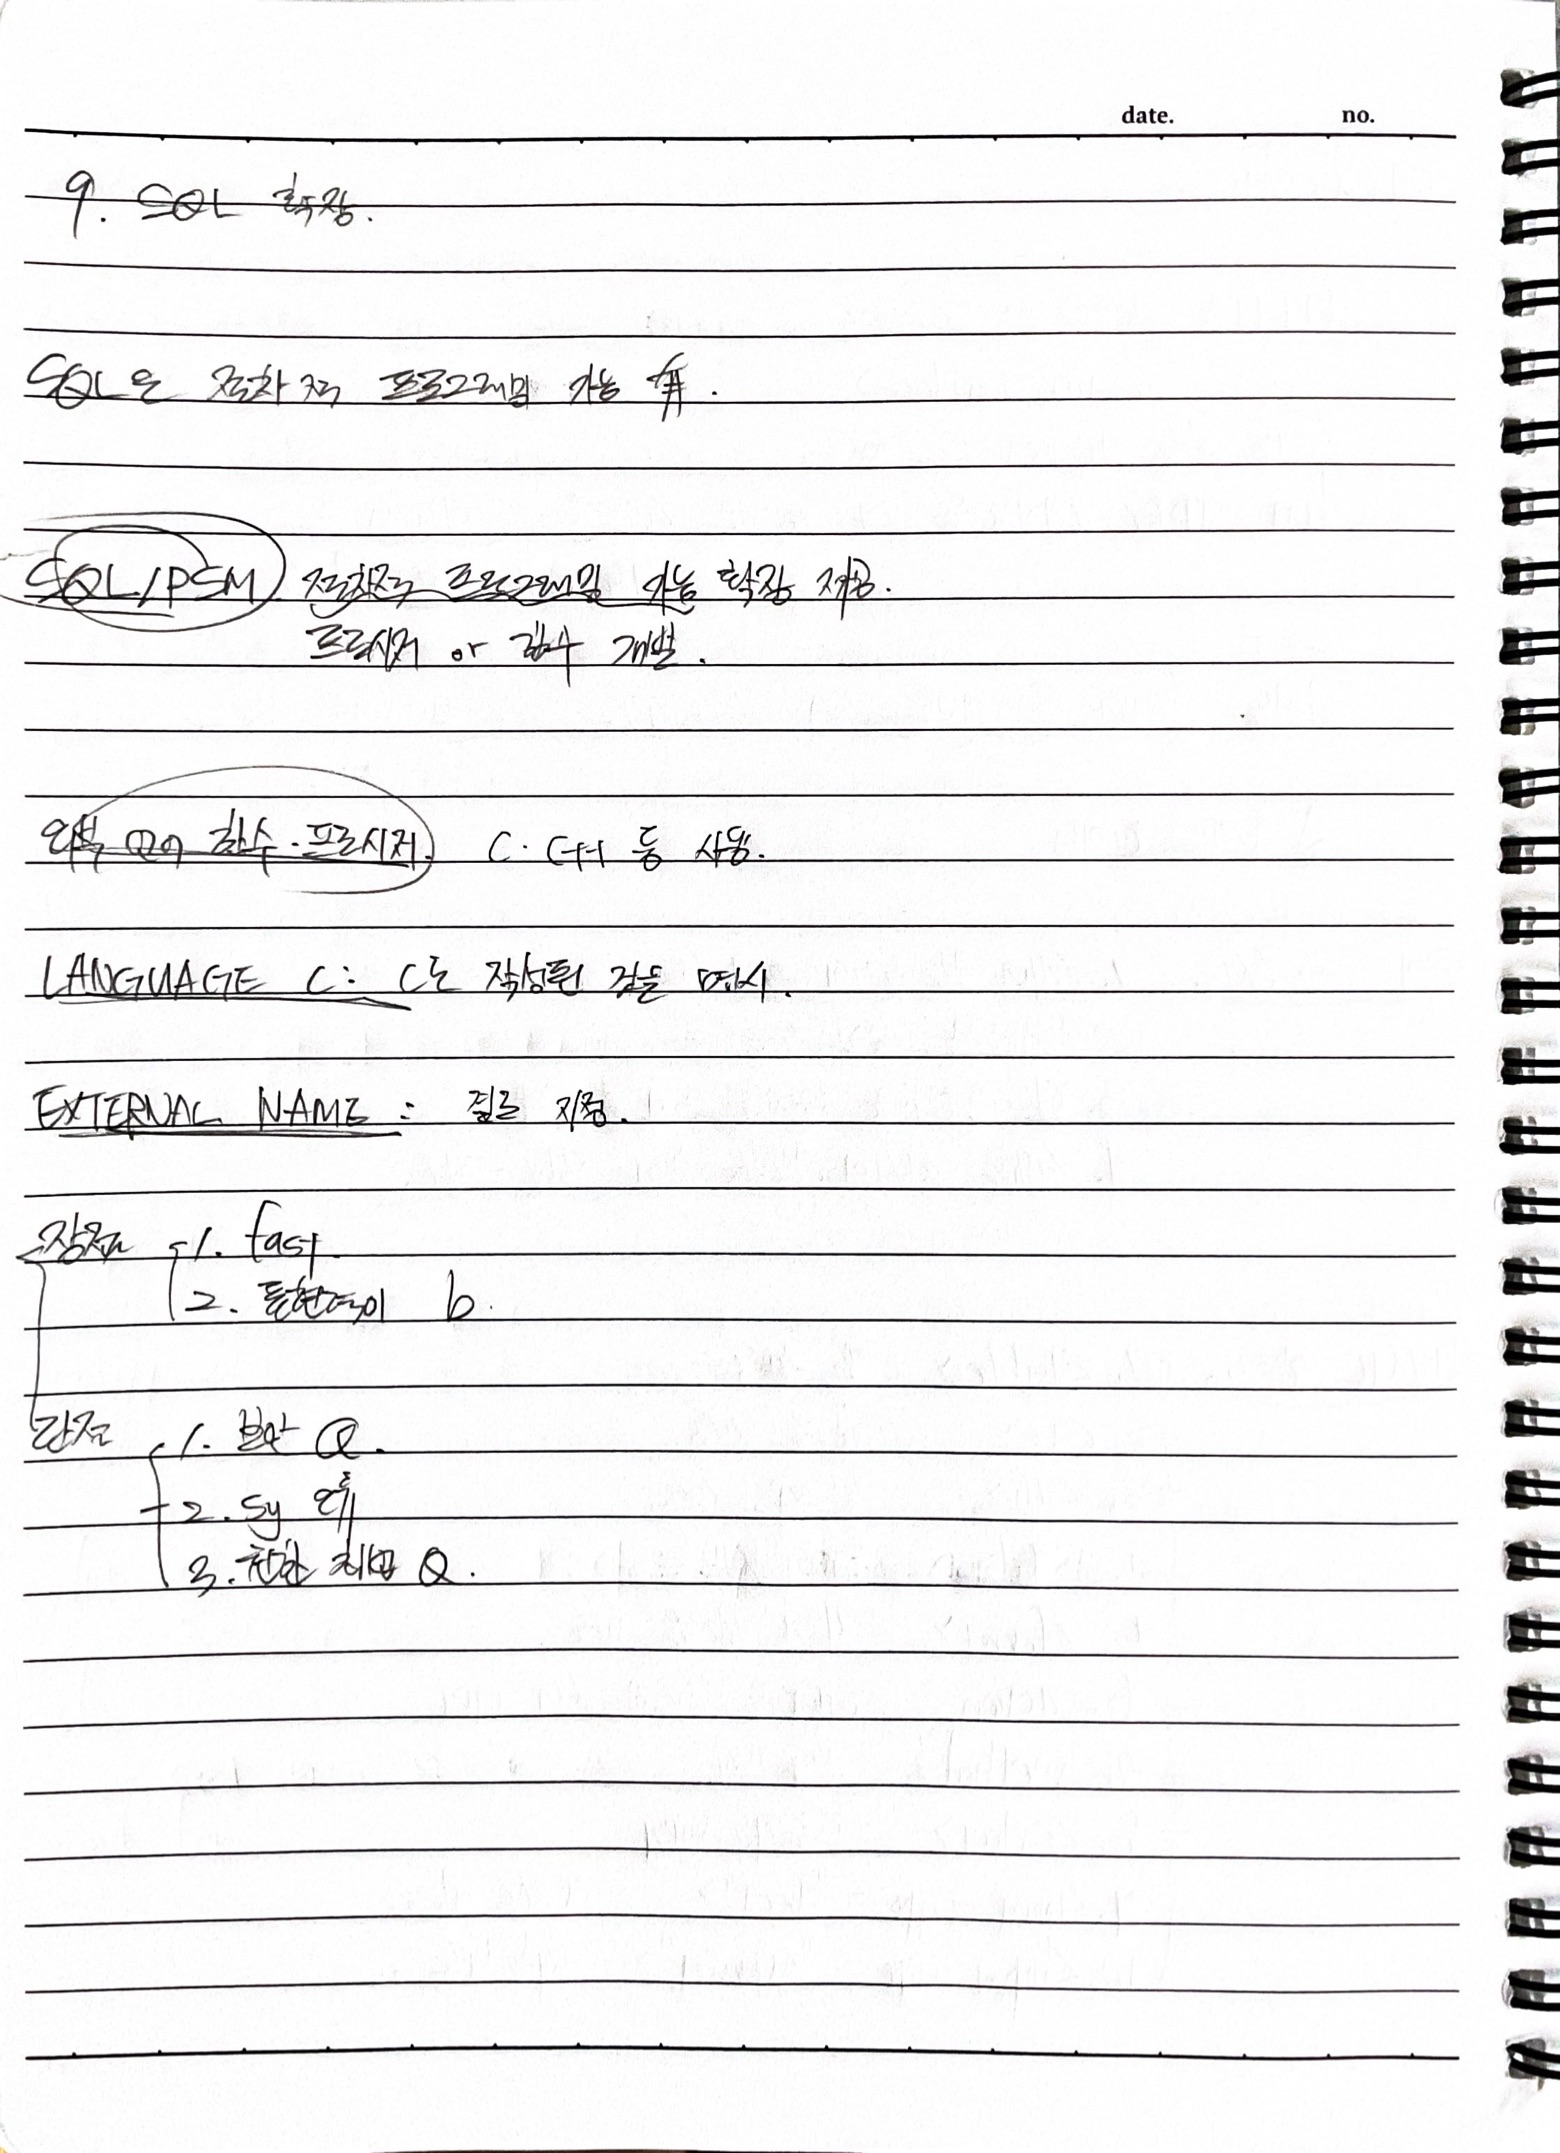 date. no.
9. SQL 확장.
SQL은 절차적 프로그래밍 가능 有.
SQL/PSM 절차적 프로그래밍 가능 확장 제공.
프로시저 or 함수 개발.
외부 언어 함수·프로시저. C·C++ 등 사용.
LANGUAGE C: C로 작성된 것을 명시.
EXTERNAL NAME : 경로 지정.
장점 1. fast.
2. 표현력이 b.
단점 1. 보안 Q.
2. Sy 오류
3. 권한 체계 Q.